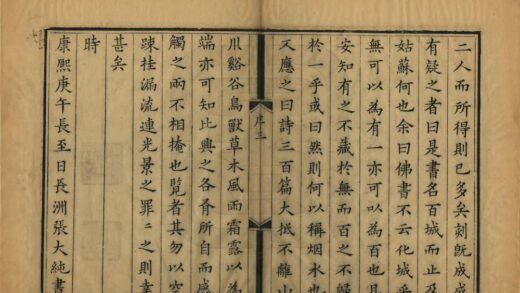 二人而所得則已多矣刻既成或
有疑之者曰是書名百城而止及
姑蘇何也余曰佛書不云化城乎
無可以為有一亦可以為百也且
安知有之不藏於無而百之不歸
於一乎或曰然則何以稱烟水也
又應之曰詩三百篇大抵不離山
序三
川谿谷鳥獸草木風雨霜露以為
端亦可知比興之各有所自而感
觸之兩不相掩也覽者其勿以空
踈挂漏流連光景之罪罪之則幸
甚矣
時
康熙庚午長至日長洲張大純書